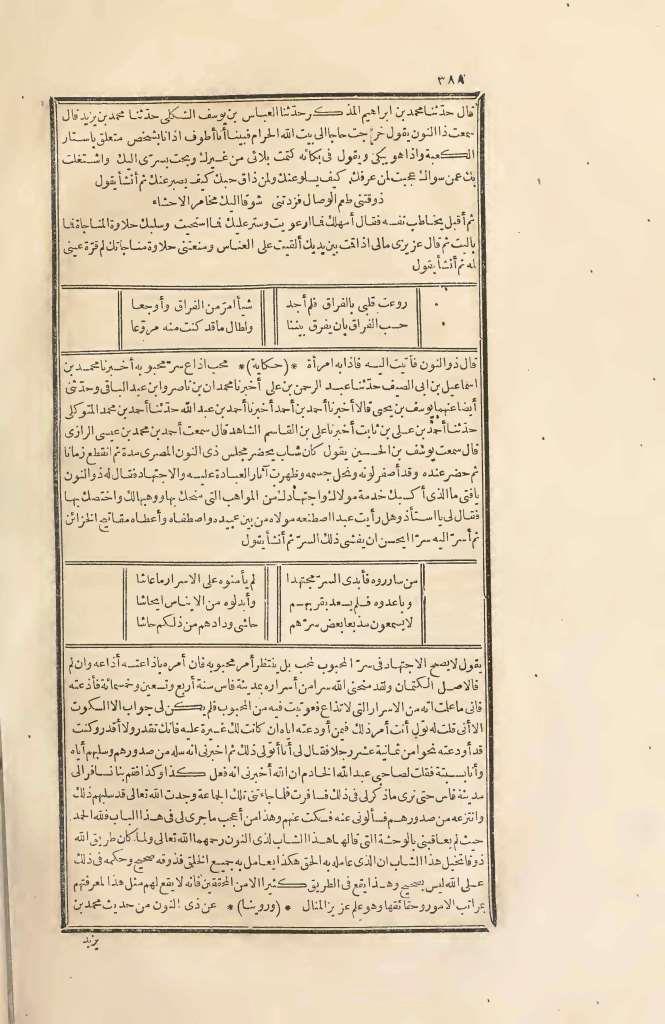 ٣٨٨
قال حدّثنا محمد بن ابراهيم المذكر حدّثنا العباس بن يوسف الشكلى حدّثنا محمد بن يزيد قال
سمعت ذا النون يقول خرجت حاجا الى بيت الله الحرام فبينا أنا أطوف اذا أنا بشخص متعلق باستار
الكعبة واذا هو يبكى ويقول فى بكائه كتمت بلائى من غيرك وبحت بسرّى اليك واشتغلت
بك عمن سواك عجبت لمن عرفك كيف يسلو عنك ولمن ذاق حبك كيف يصبر عنك ثم أنشأ يقول
ذوقتنى طعم الوصال فزدتنى شوقا اليك مخامر الاحشاء
ثم أقبل يخاطب نفسه فقال أمهلك فما ارعويت وستر عليك فما استحيت وسلبك حلاوة المناجاة فما
باليت ثم قال عزيزى مالى اذا قمت بين يديك ألقيت على النعاس ومنعتنى حلاوة مناجاتك لم قرّة عينى
لمه ثم أنشأ يقول
روعت قلبى بالفراق فلم أجد شيأ امرّ من الفراق وأوجعا
حسب الفراق بان يفرق بيننا ولطال ما قد كنت منه مروّعا
قال ذو النون فأتيت اليه فاذا به امرأة * (حكاية) * محب اذاع سرّ محبوبه أخبرنا محمد بن
اسماعيل بن ابى الصيف حدّثنا عبد الرحمن بن على أخبرنا محمدان بن ناصر وابن عبد الباقى وحدّثنى
أيضا عنهما يوسف بن يحيى قالا أخبرنا أحمد بن أحمد أخبرنا أحمد بن عبد الله حدّثنا أحمد بن محمد المتوكلى
حدّثنا أحمد بن على بن ثابت أخبرنا على بن القاسم الشاهد قال سمعت أحمد بن محمد بن عيسى الرازى
قال سمعت يوسف بن الحسين يقول كان شاب يحضر مجلس ذى النون المصرى مدة ثم انقطع زمانا
ثم حضر عنده وقد أصفر لونه ونحل جسمه وظهرت آثار العبادة عليه والاجتهاد فقال له ذو النون
يافتى ما الذى أكسبك خدمة مولاك واجتهادك من المواهب التى منحك بها ووهبها لك واختصك بها
فقال لى يا استاذ وهل رأيت عبدا اصطنعه مولاه من بين عبيده واصطفاه وأعطاه مفاتيح الخزائن
ثم أسرّ اليه سرّا ايحسن ان يفشى ذلك السرّ ثم أنشأ يقول
من ساروره فأبدى السرّ مجتهدا لم يأمنوه على الاسرار ما عاشا
وباعدوه فلم يسعد بقربهم وأبدلوه من الايناس ايحاشا
لا يصطفون مذيعا بعض سرّهم حاشى ودادهم من ذلكم حاشا
يقول لا يصح الاجتهاد فى سرّ المحبوب لمحب بل ينتظر أمر محبوبه فان أمره باذاعته أذاعه وان لم
فالاصل الكتمان ولقد منحنى الله سرا من أسراره بمدينة فاس سنة أربع وتسعين وخمسمائة فأذعته
فانى ما علمت انه من الاسرار التى لا تذاع فعوتبت فيه من المحبوب فلم يكن لى جواب الا السكوت
الا أنى قلت له تولّ أنت أمر ذلك فيمن أودعته اياه ان كانت لك غيرة عليه فانك تقدر ولا أقدر وكنت
قد أودعته نحوا من ثمانية عشر رجلا فقال لى أنا أتولى ذلك ثم اخبرنى انه سله من صدورهم وسلبهم أياه
وأنا بسبتة فقلت لصاحبى عبد الله الخادم ان الله أخبرنى انه فعل كذا وكذا فقم بنا نسافر الى
مدينة فاس حتى نرى ما ذكر لى فى ذلك فسافرت فلما جاءتنى تلك الجماعة وجدت الله تعالى قد سلبهم ذلك
وانتزعه من صدورهم فسألونى عنه فسكت عنهم وهذا من أعجب ما جرى لى فى هذا الباب فلله الحمد
حيث لم يعاقبنى بالوحشة التى قالها هذا الشاب لذى النون رحمهما الله تعالى ولما كان طريق الله
ذوقا تخيل هذا الشاب ان الذى عامله به الحق هكذا يعامل به جميع الخلق فذوقه صحيح وحكمه فى ذلك
على الله ليس بصحيح وهذا يقع فى الطريق كثيرا الا من المحققين فانه لا يقع لهم مثل هذا لمعرفتهم
بمراتب الامور وحقائقها وهو علم عزيز المنال * (وروينا) * عن ذى النون من حديث محمد بن
يزيد